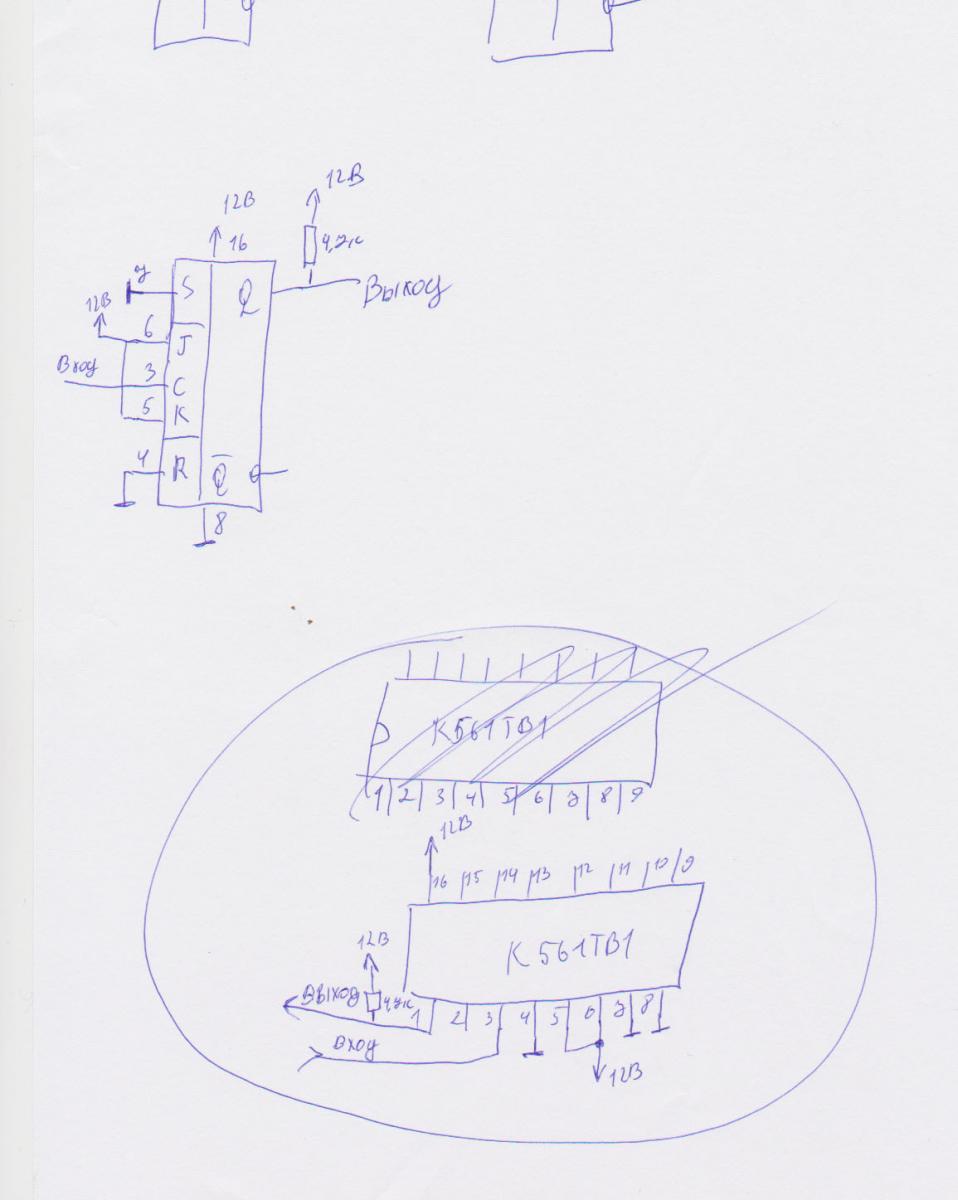 12В
12В
16
4,7к
7
S
Q
Выход
12В
6
J
Вход
3
C
5
K
4
R
Q̅
8
К561ТВ1
1 2 3 4 5 6 7 8 9
12В
16 15 14 13 12 11 10 9
К561ТВ1
12В
ВЫХОД
4,7к
1 2 3 4 5 6 7 8
ВХОД
12В